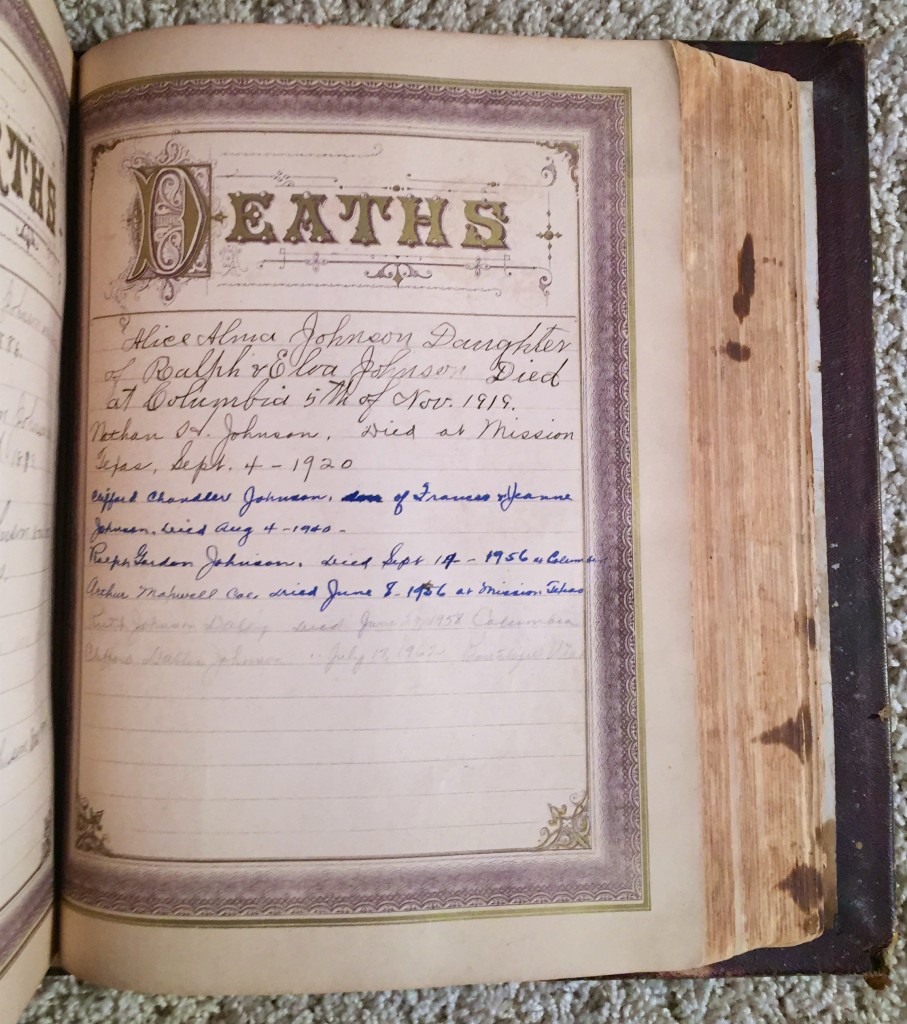 RTHS
DEATHS
Alice Alma Johnson Daughter
of Ralph & Elva Johnson Died
at Columbia 5th of Nov. 1919.
Nathan H. Johnson. Died at Mission
Texas, Sept. 4 - 1920
Clifford Chandler Johnson. son of Frances & Jeanne
Johnson. Died Aug 4 - 1940 -
Ralph Gordon Johnson. Died Sept 14 - 1956 at Columbia
Arthur Maxwell Coe. Died June 8 - 1956 at Mission Texas
Johnson Died June 1958 Columbia
Clifford Johnson " July 1962